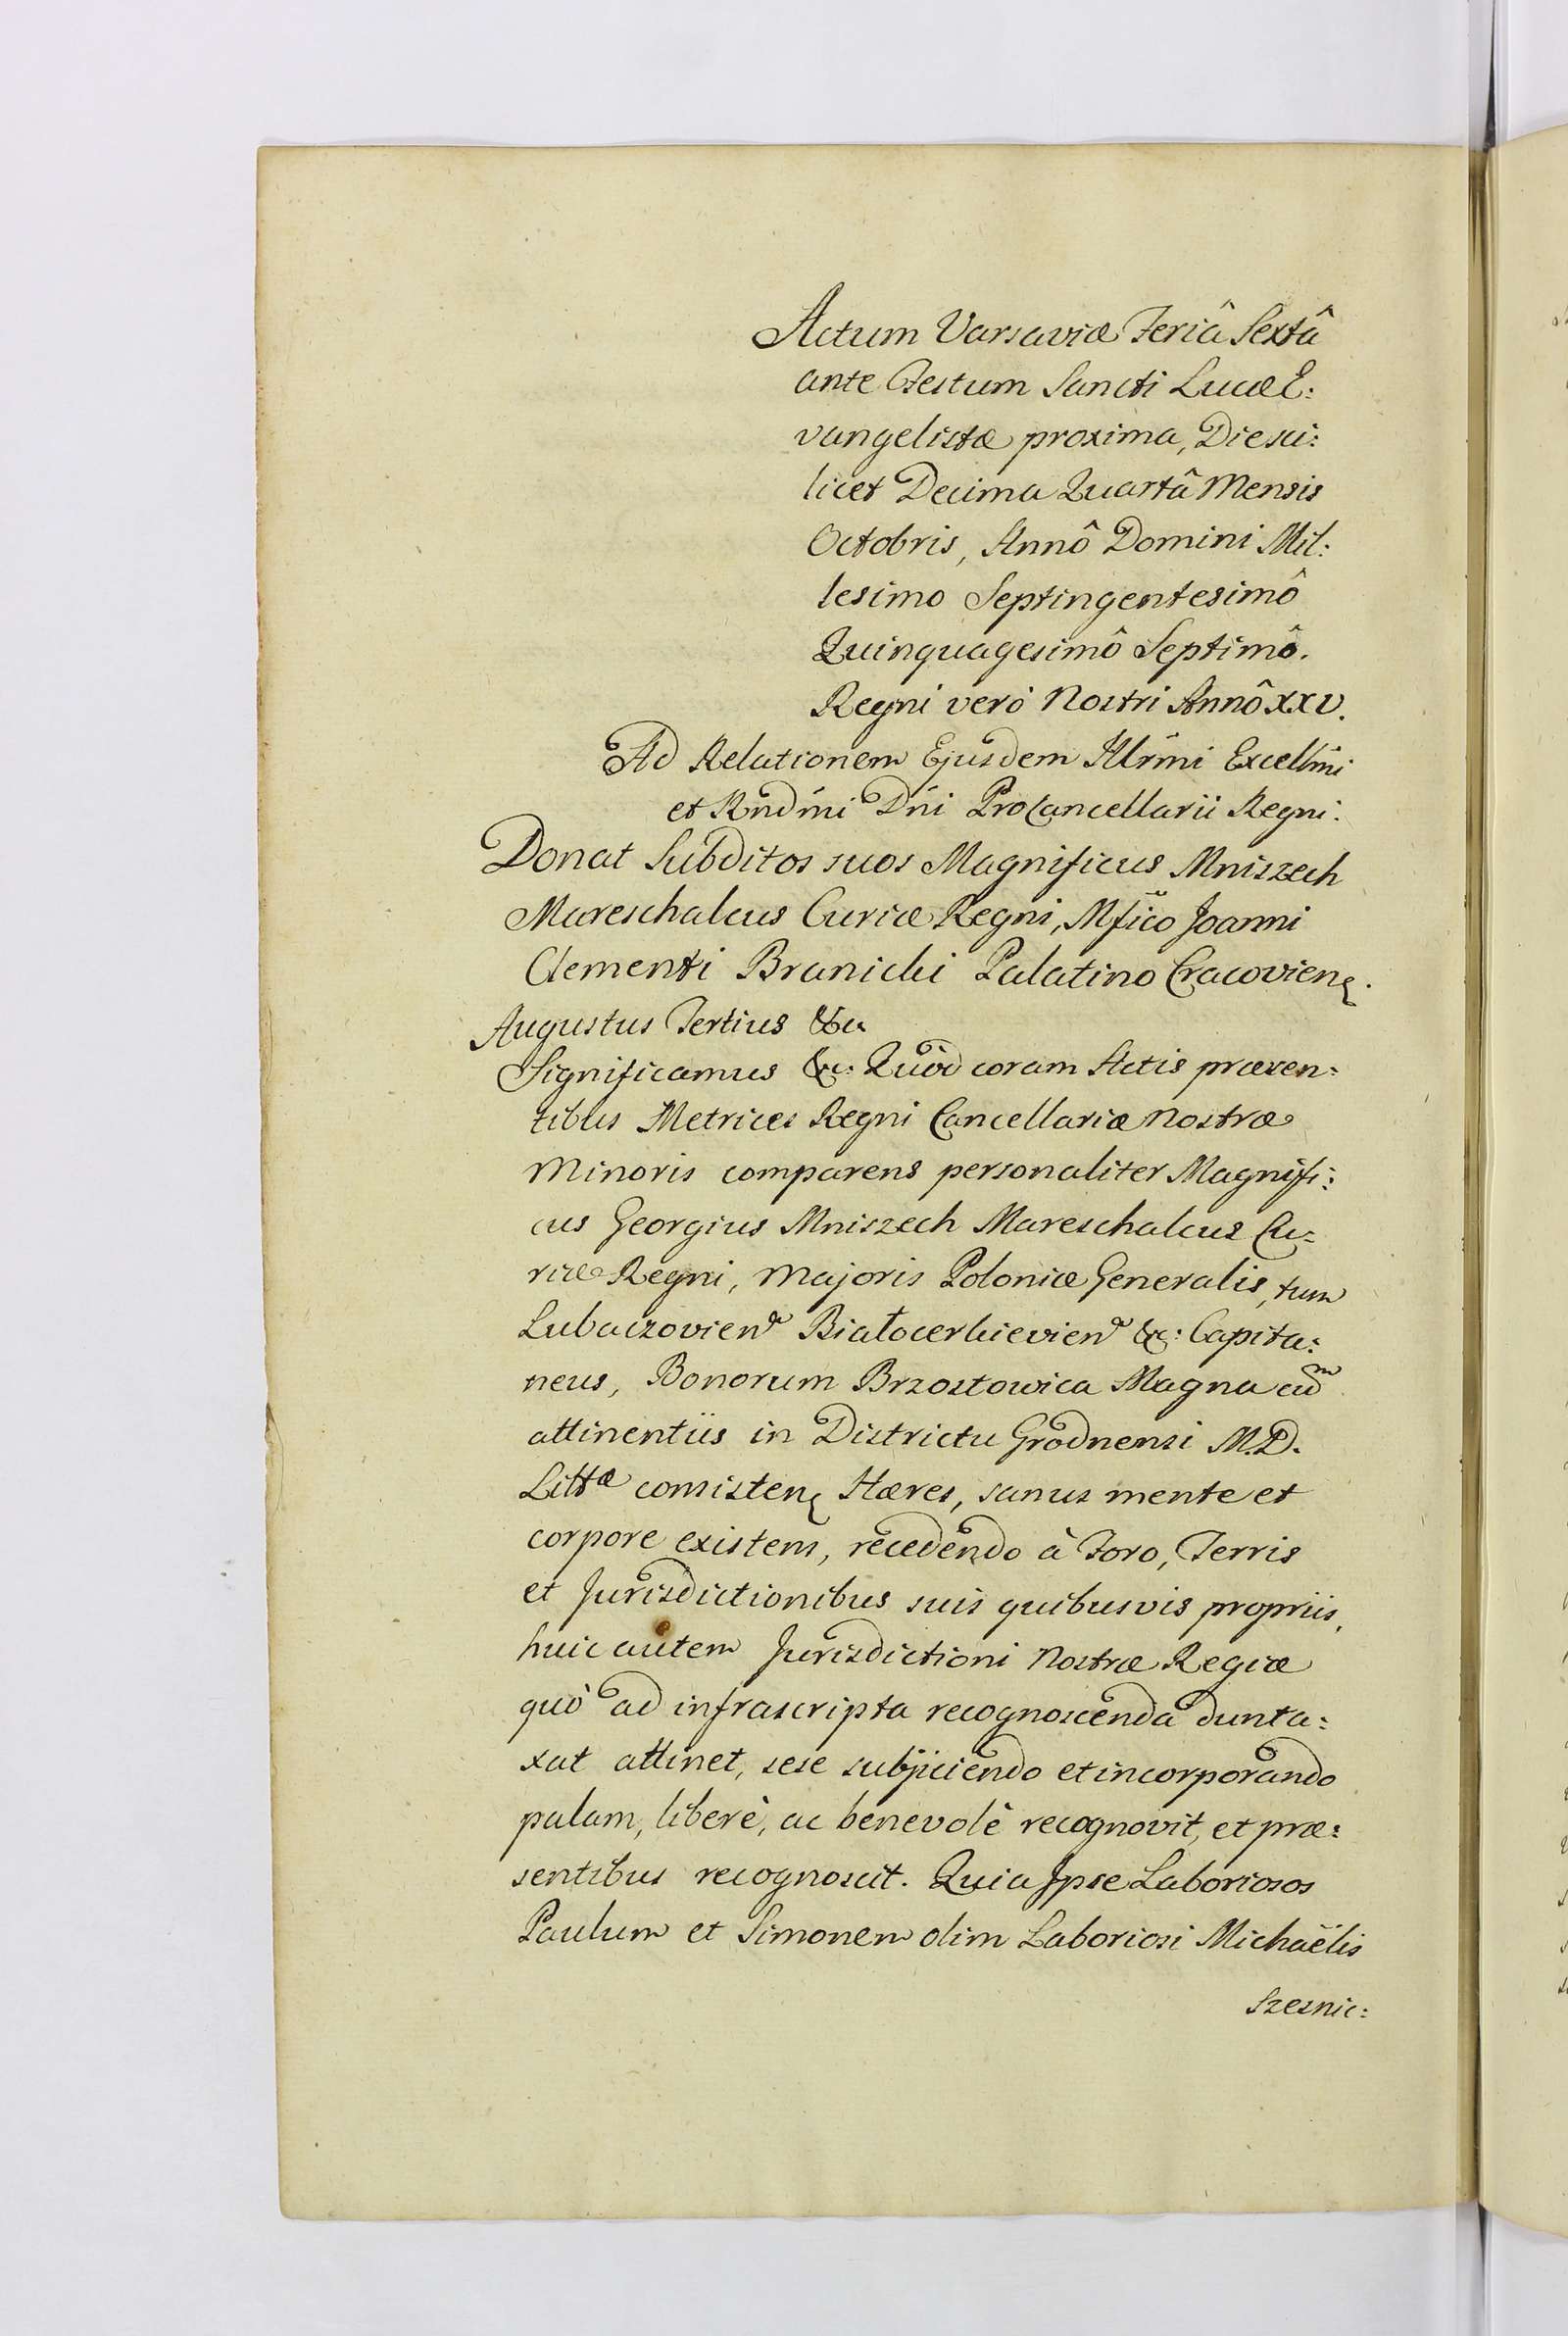 Actum Varsaviæ Feriâ Sextâ
ante Festum Sancti Lucæ E:
vangelistæ proxima, Die sci:
licet Decima Quartâ Mensis
Octobris, Annô Domini Mil:
lesimo Septingentesimô
Quinquagesimô Septimô.
Regni verò Nostri Annô XXV.
Ad Relationem Ejusdem Illrmi Excellmi
et Rndmi Dni ProCancellarii Regni.
Donat Subditos suos Magnificus Mniszech
Mareschalcus Curiæ Regni, Mfico Joanni
Clementi Branicki Palatino Cracovien.
Augustus Tertius &c
Significamus &c: Quòd coram Actis præsen:
tibus Metrices Regni Cancellariæ Nostræ
Minoris comparens personaliter Magnifi:
cus Georgius Mniszech Mareschalcus Cu:
riæ Regni, Majoris Poloniæ Generalis, tum
Lubaczovien Białocerkievien &c: Capita:
neus, Bonorum Brzostowica Magna cum
attinentiis in Districtu Grodnensi M.D.
Littæ consisten Hæres, sanus mente et
corpore existens, recedendo à Foro, Terris
et Jurisdictionibus suis quibusvis propriis,
huic autem Jurisdictioni Nostræ Regiæ
quò ad infrascripta recognoscenda dunta:
xat attinet, sese subjiciendo et incorporando
palam, liberè, ac benevolè recognovit, et præ:
sentibus recognoscit. Quia Ipse Laboriosos
Paulum et Simonem olim Laboriosi Michaëlis
Szesnic: